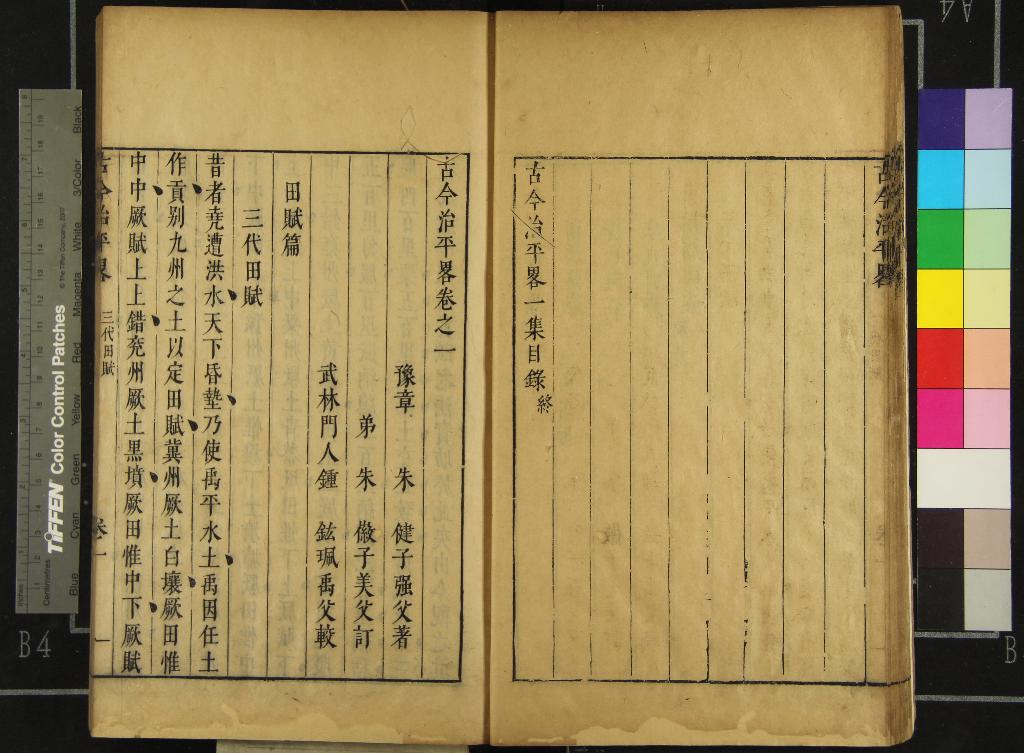 古今治平畧
古今治平畧一集目錄終
古今治平畧卷之一
豫章 朱 健子强父著
弟 朱 徽子美父訂
武林門人鍾 鉉珮禹父較
田賦篇
三代田賦
昔者堯遭洪水天下昏墊乃使禹平水土禹因任土
作貢别九州之土以定田賦冀州厥土白壤厥田惟
中中厥賦上上錯兖州厥土黑墳厥田惟中下厥賦
古今治平畧 三代田賦 卷一 一
TIFFEN Color Control Patches
© The Tiffen Company, 2007
Inches
Centimetres
Blue Cyan Green Yellow Red Magenta White 3/Color Black
B4
A4
B